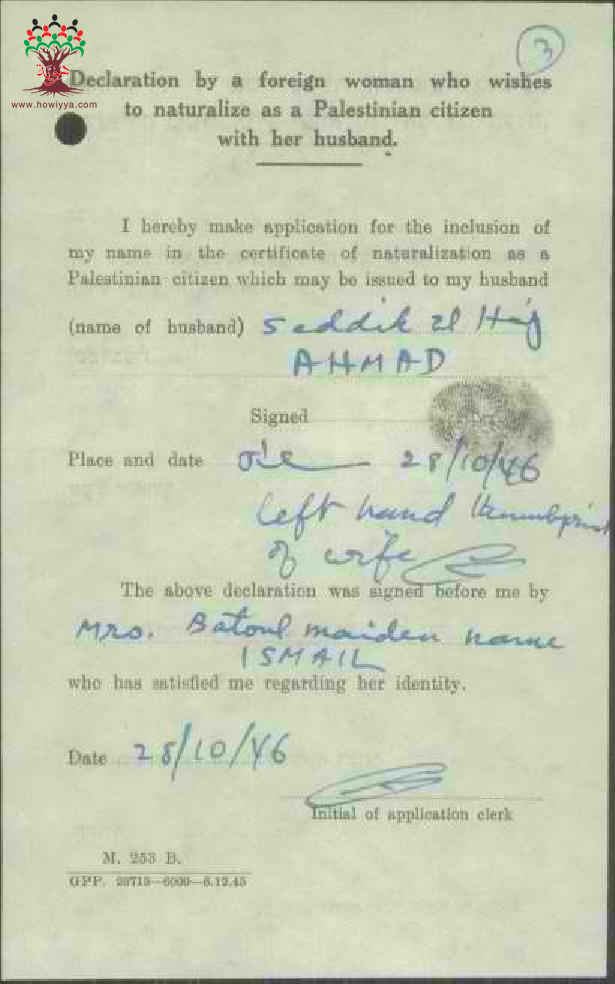 3
www.howiyya.com
Declaration by a foreign woman who wishes
to naturalize as a Palestinian citizen
with her husband.
I hereby make application for the inclusion of
my name in the certificate of naturalization as a
Palestinian citizen which may be issued to my husband
(name of husband) Seddik El Haj
AHMAD
Signed
Place and date 28/10/46
left hand thumbprint
of wife
The above declaration was signed before me by
Mrs. Batoul maiden name
ISMAIL
who has satisfied me regarding her identity.
Date 28/10/46
Initial of application clerk
M. 253 B.
GPP. 29713—6000—6.12.45